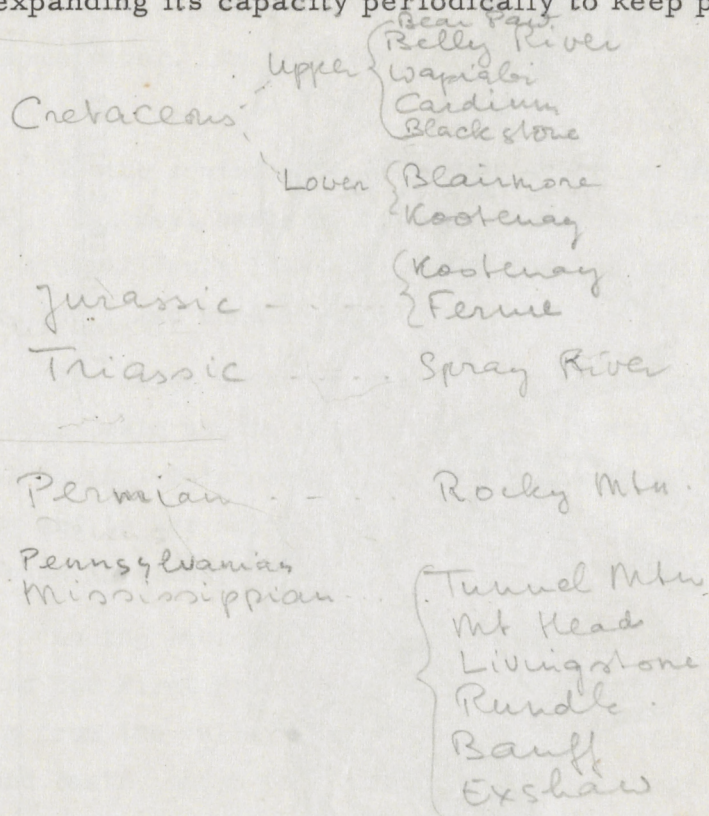 expanding its capacity periodically to keep p
Bear Paw
Belly River
Upper
Wapiabi
Cretaceous
Cardium
Blackstone
Lower
Blairmore
Kootenay
Kootenay
Jurassic
Fernie
Triassic
Spray River
Permian
Rocky Mtn.
Pennsylvanian
Mississippian
Tunnel Mtn
Mt Head
Livingstone
Rundle
Banff
Exshaw